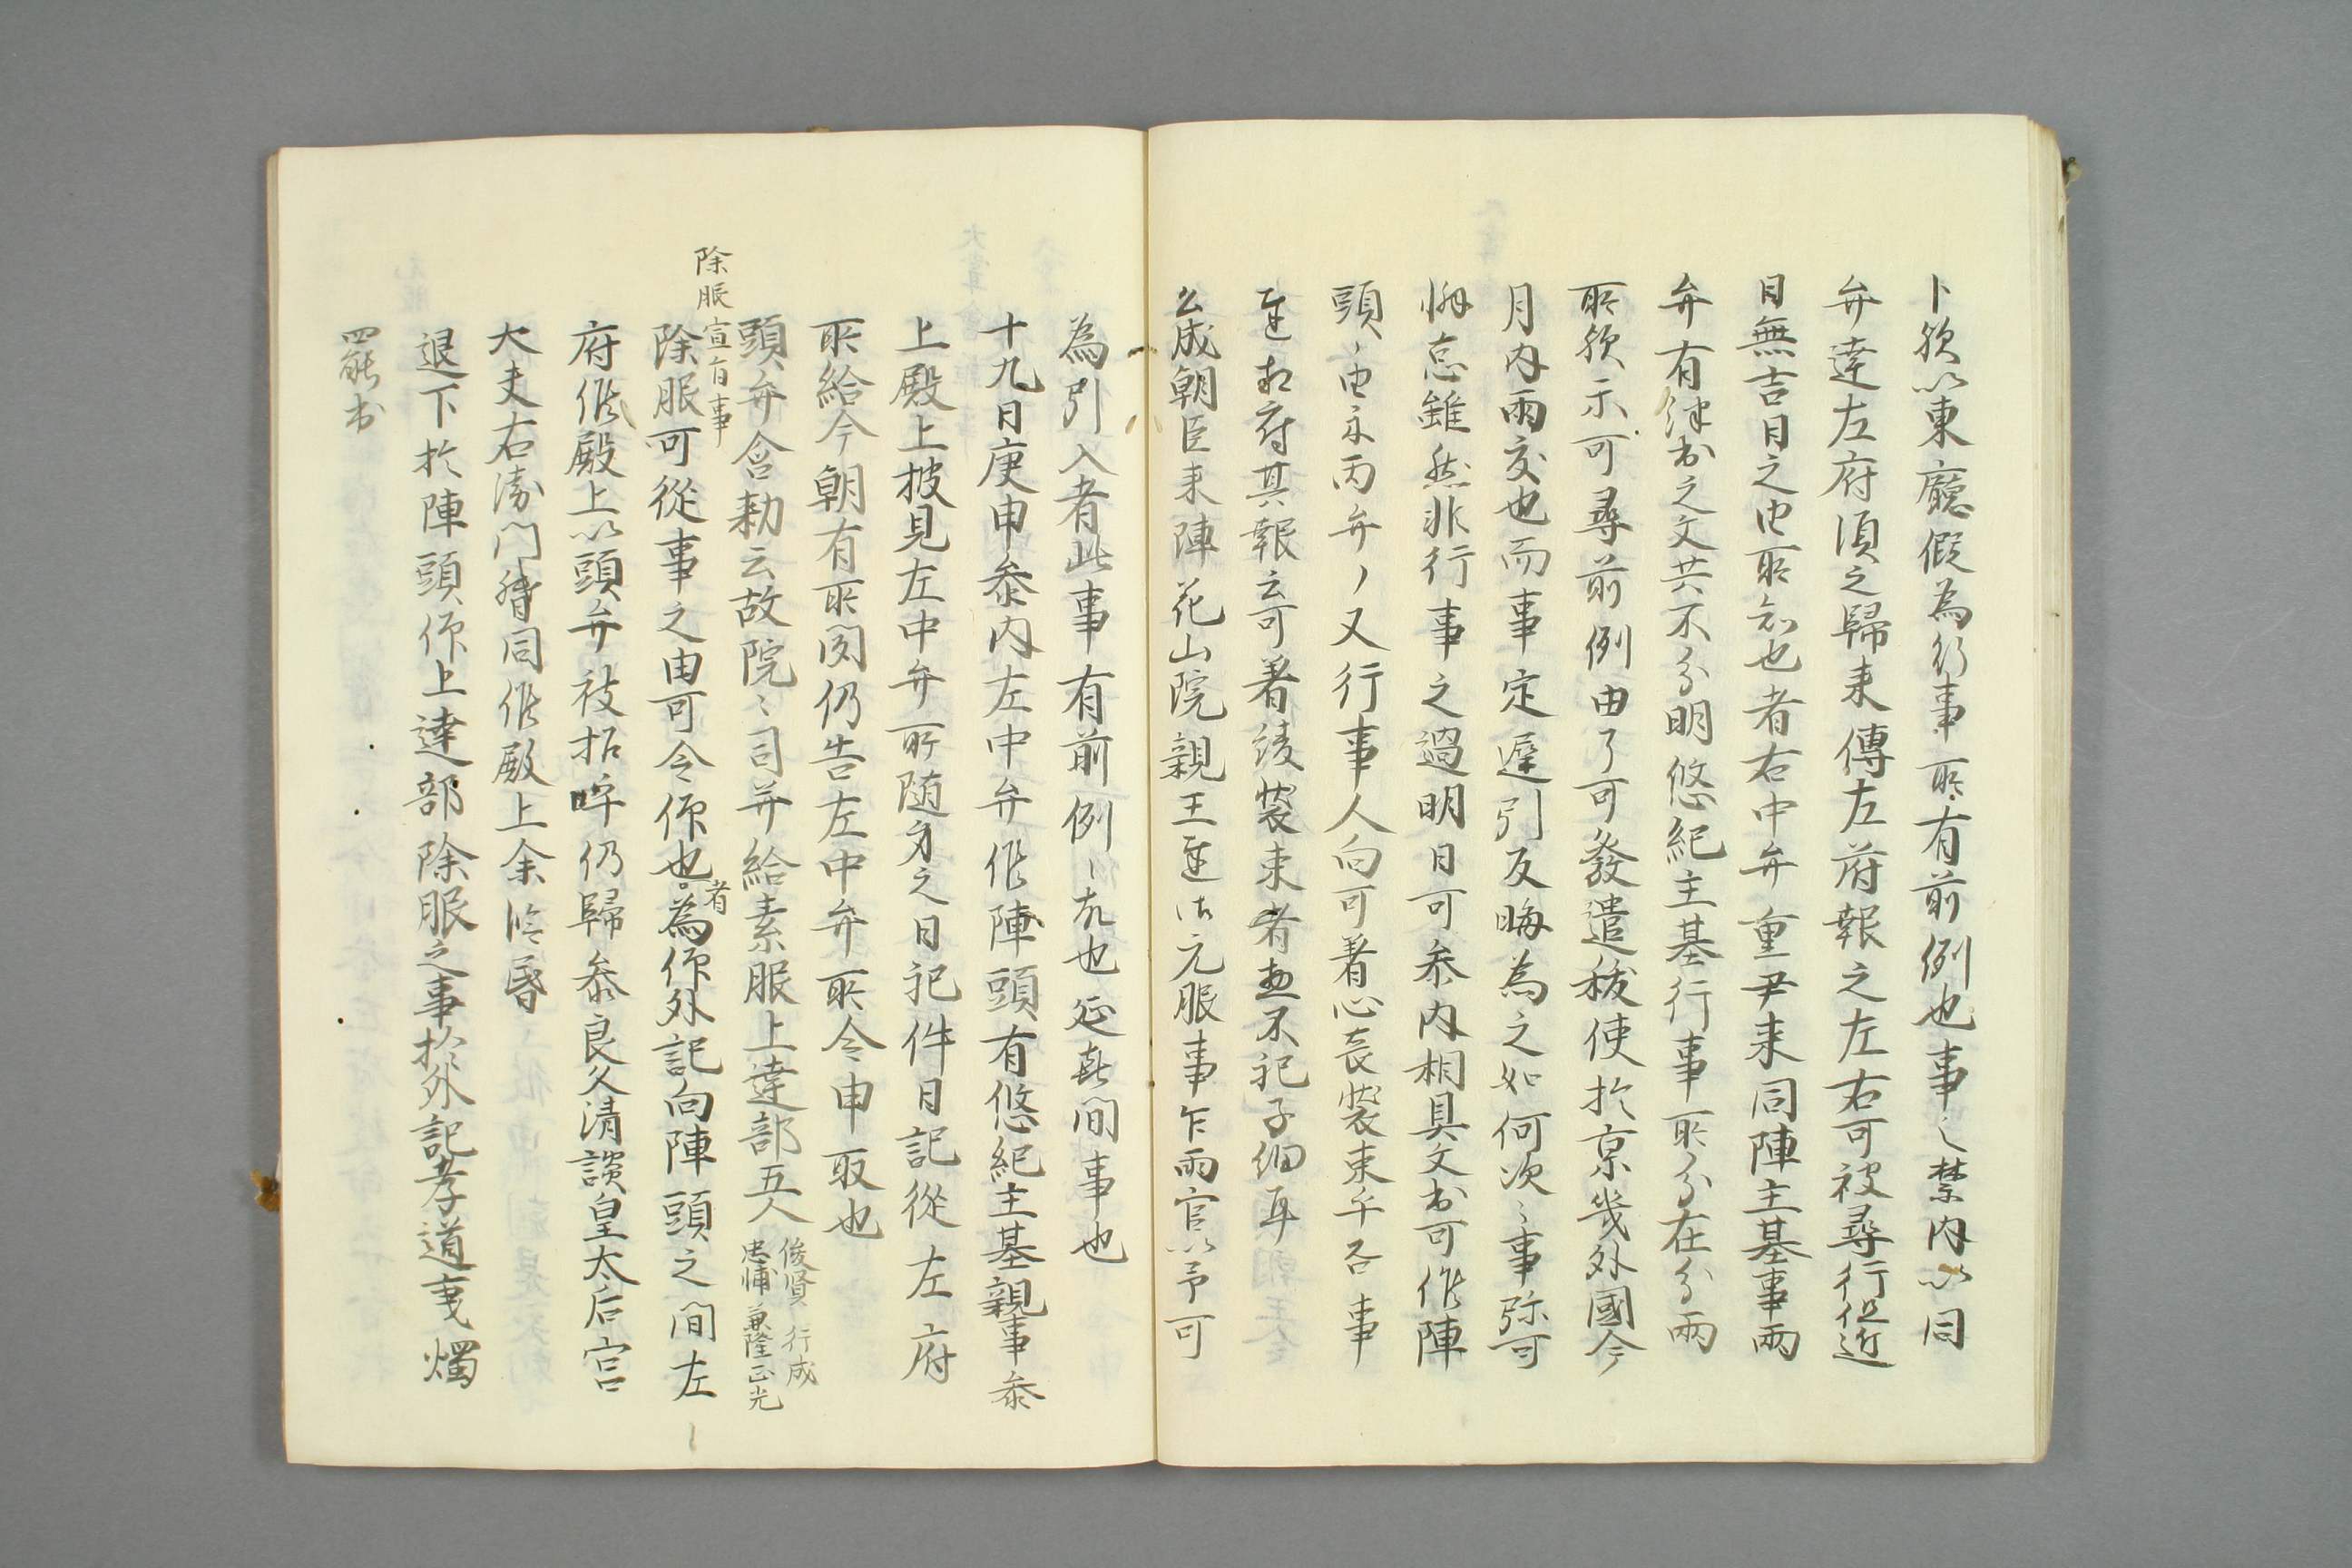 卜然以東廳假為行事所有前例也事〻禁内以同
弁達左府須之歸来傳左府報之左右可被尋行但近
日無吉日之由所知也者右中弁重尹来同陣主基事兩
弁有律書之文共不分明悠紀主基行事所分在分兩
所然示可尋前例由了可發遣祓使於京畿外國今
月内兩交也而事定遅引及晦為之如何次〻事弥可
懈怠雖然非行事之過明日可参内相具文書可候陣
頭〻由示丙弁了又行事人向可著心喪裝束乎否事
達相府其報云可著綾裝束者恵不記子細耳
公成朝臣来陣花山院親王達御元服事乍兩官以予可
為引入者此事有前例〻尤也延喜間事也
十九日庚申参内左中弁候陣頭有悠紀主基親事参
上殿上披見左中弁所随身之日記件日記從左府
所給今朝有所聞仍告左中弁所令申取也
頭弁含勅云故院〻司并給素服上達部五人俊賢 行成
忠輔 兼隆 正光
除服宣旨事
除服可從事之由可令仰也者為仰外記向陣頭之間左
府候殿上以頭弁被招呼仍歸参良久清談皇太后宮
大夫右衛門督同候殿上余臨昏
退下於陣頭仰上達部除服之事於外記孝道秉燭
罷出